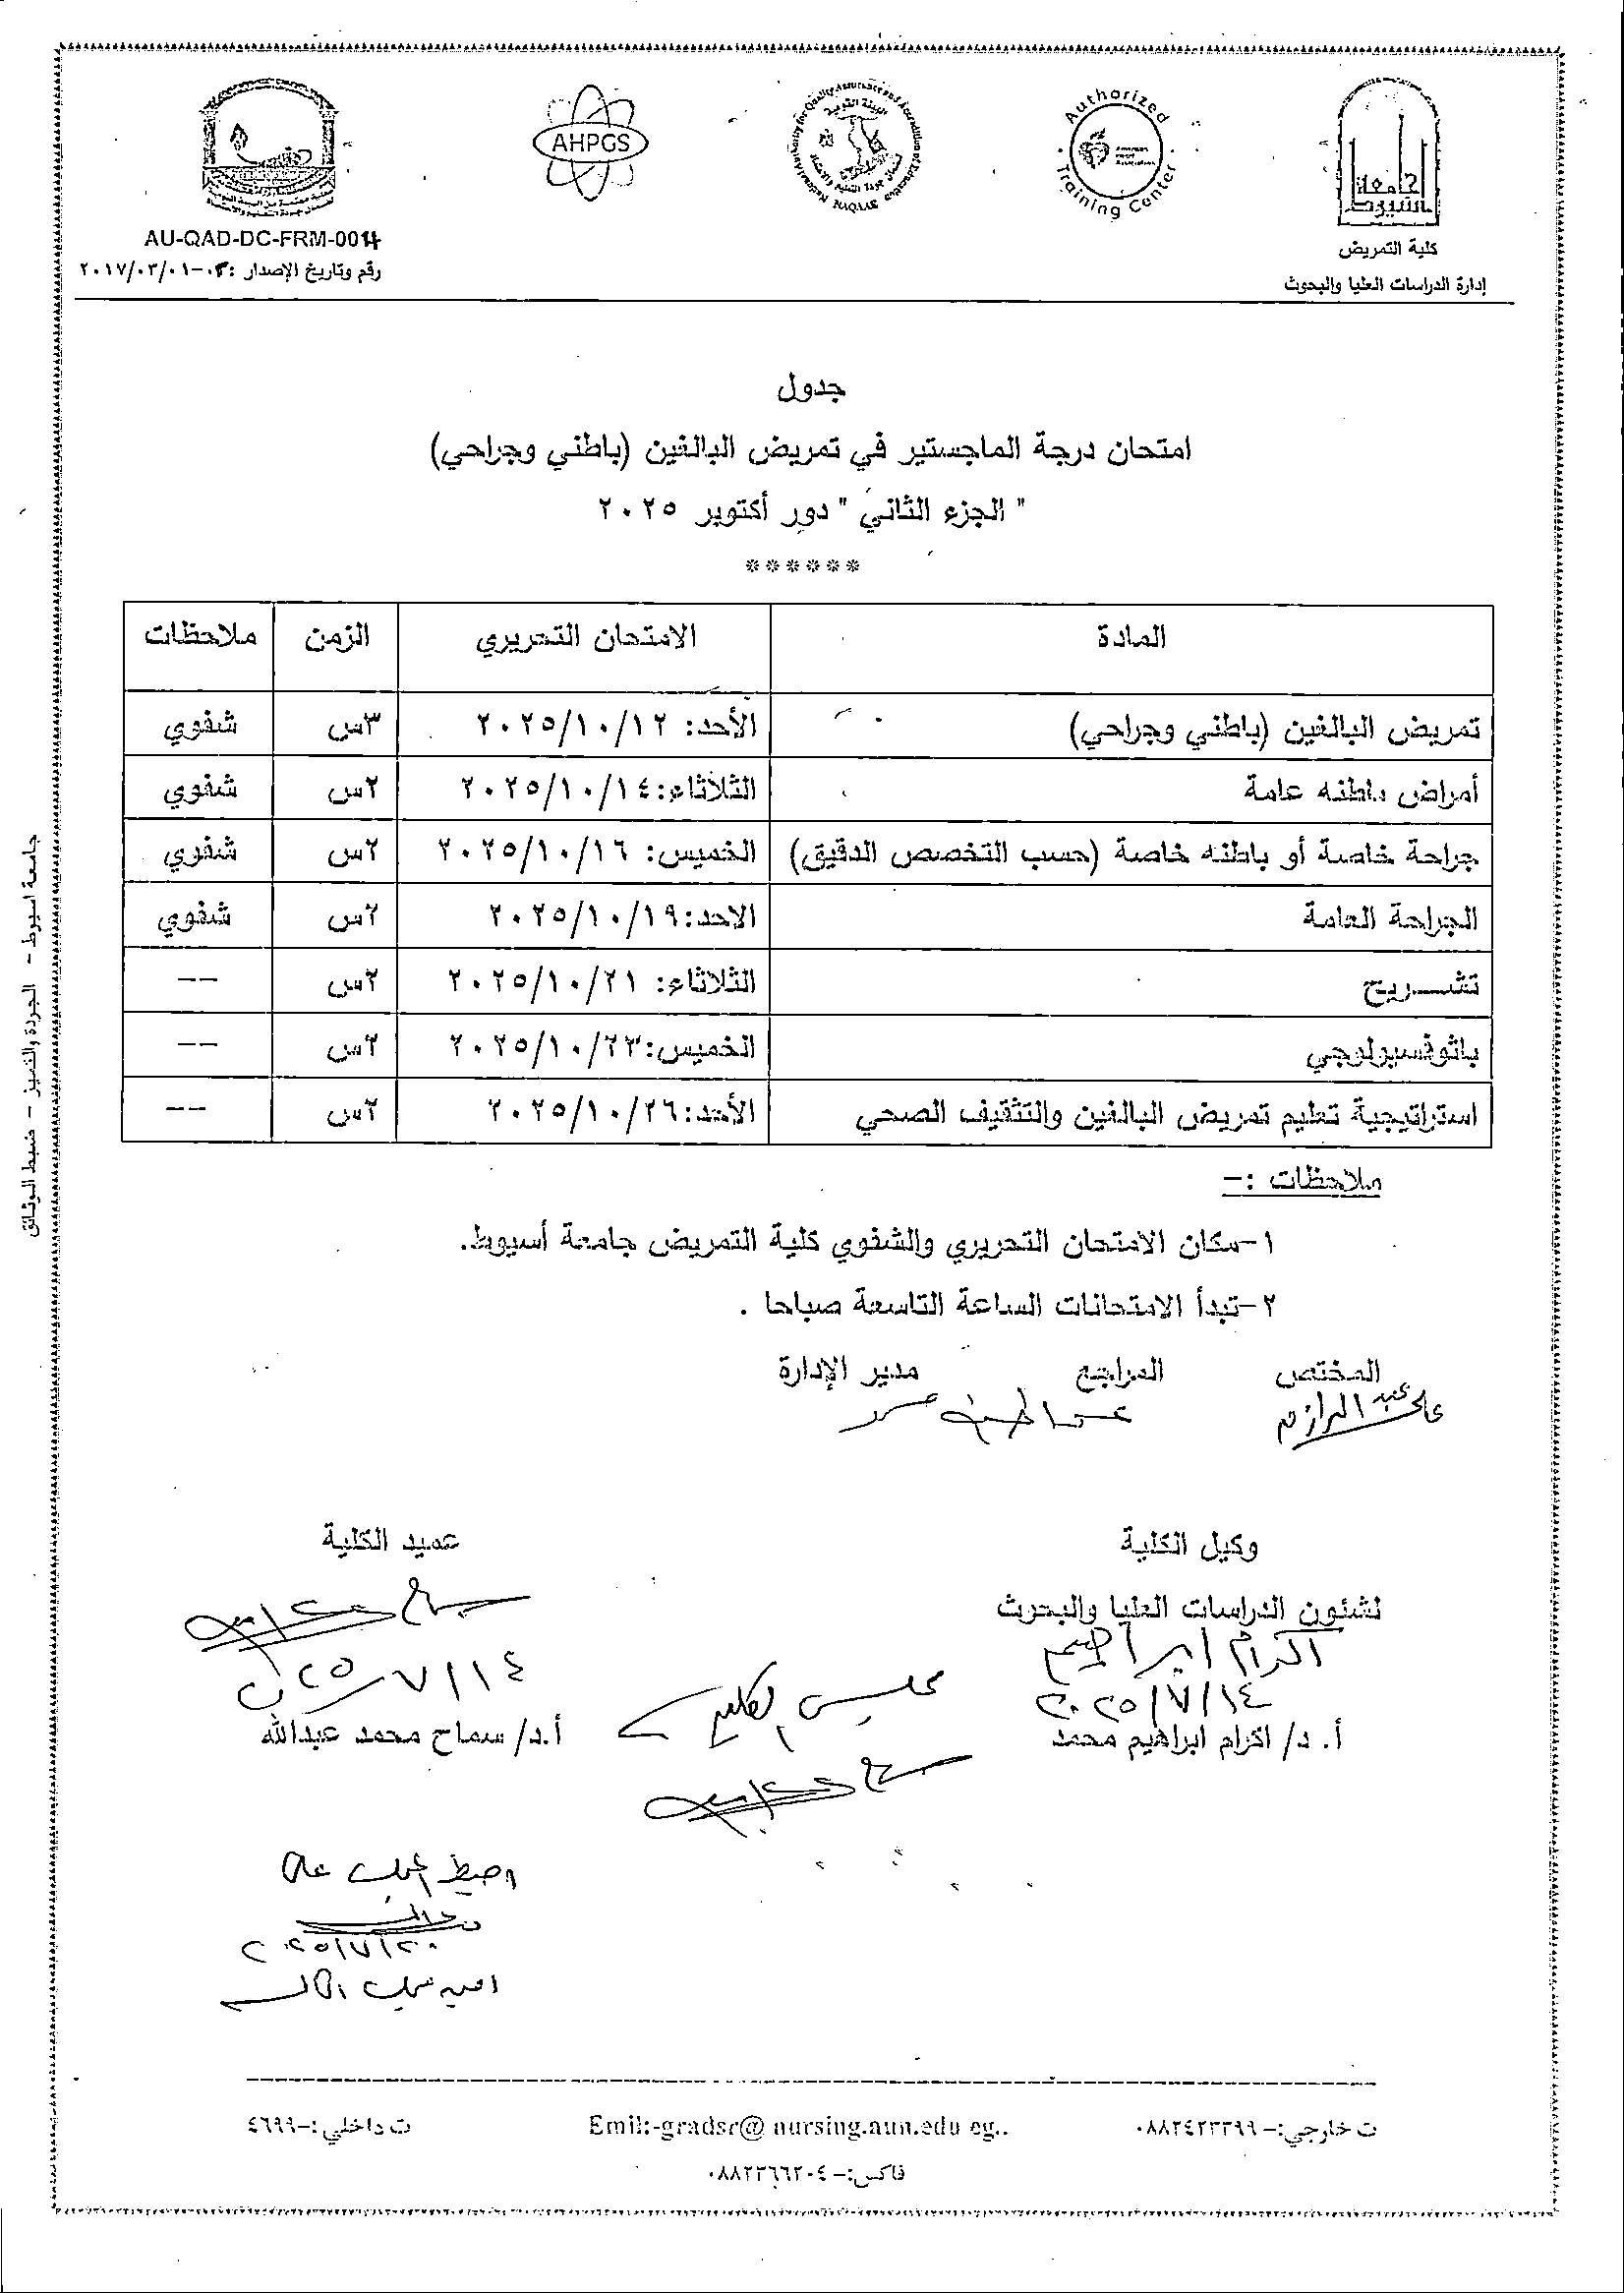 جامعة أسيوط
كلية التمريض
إدارة الدراسات العليا والبحوث
Authorized Training Center
AHPGS
AU-QAD-DC-FRM-0014
رقم وتاريخ الإصدار :٠٣-٢٠١٧/٠٣/٠١
جدول
امتحان درجة الماجستير في تمريض البالغين (باطني وجراحي)
" الجزء الثاني " دور أكتوبر ٢٠٢٥
******
المادة الامتحان التحريري الزمن ملاحظات
تمريض البالغين (باطني وجراحي) الأحد: ٢٠٢٥/١٠/١٢ ٣س شفوي
أمراض باطنه عامة الثلاثاء:٢٠٢٥/١٠/١٤ ٢س شفوي
جراحة خاصة أو باطنه خاصة (حسب التخصص الدقيق) الخميس: ٢٠٢٥/١٠/١٦ ٢س شفوي
الجراحة العامة الاحد:٢٠٢٥/١٠/١٩ ٢س شفوي
تشـــريح الثلاثاء: ٢٠٢٥/١٠/٢١ ٢س --
باثوفسيولوجي الخميس:٢٠٢٥/١٠/٢٣ ٢س --
استراتيجية تعليم تمريض البالغين والتثقيف الصحي الأحد:٢٠٢٥/١٠/٢٦ ٢س --
ملاحظات :-
١-مكان الامتحان التحريري والشفوي كلية التمريض جامعة أسيوط.
٢-تبدأ الامتحانات الساعة التاسعة صباحا .
المختص المراجع مدير الإدارة
وكيل الكلية عميد الكلية
لشئون الدراسات العليا والبحوث
اكرام ابراهيم
٢٠٢٥/٧/١٤
أ. د/ اكرام ابراهيم محمد أ.د/ سماح محمد عبدالله
مجلس الكلية
٢٠٢٥/٧/٢٠
ت خارجي:-٠٨٨٢٤٢٣٣٩٩ Emil:-gradsr@ nursing.aun.edu eg.. ت داخلي:-٤٦٩٩
فاكس:-٠٨٨٢٣٦٦٢٠٤
جامعة اسيوط - الجودة والتميز - ضبط الوثائق